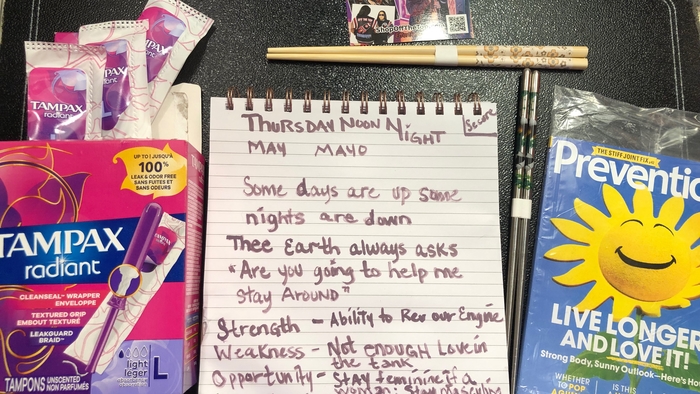 ShopOnThe
THURSDAY NOON NIGHT
Secure
MAY MAYO
Some days are up some
nights are down
Thee Earth always asks
"Are you going to help me
stay Around"
Strength - Ability to Rev our Engine
Weakness - Not enough Love in
the tank
Opportunity - Stay feminine if a
woman; Stay masculine
TAMPAX
radiant
TAMPAX
radiant
UP TO | JUSQU'À
100%
LEAK & ODOR FREE
SANS FUITES ET
SANS ODEURS
TAMPAX
radiant
CLEANSEAL™ WRAPPER
ENVELOPPE
TEXTURED GRIP
EMBOUT TEXTURÉ
LEAKGUARD
BRAID™
light
léger
L
TAMPONS UNSCENTED
NON PARFUMÉS
THE STIFF JOINT FIX
Preventio
LIVE LONGER
AND LOVE IT!
Strong Body, Sunny Outlook—Here's Ho
WHETHER
TO POP
IS THIS